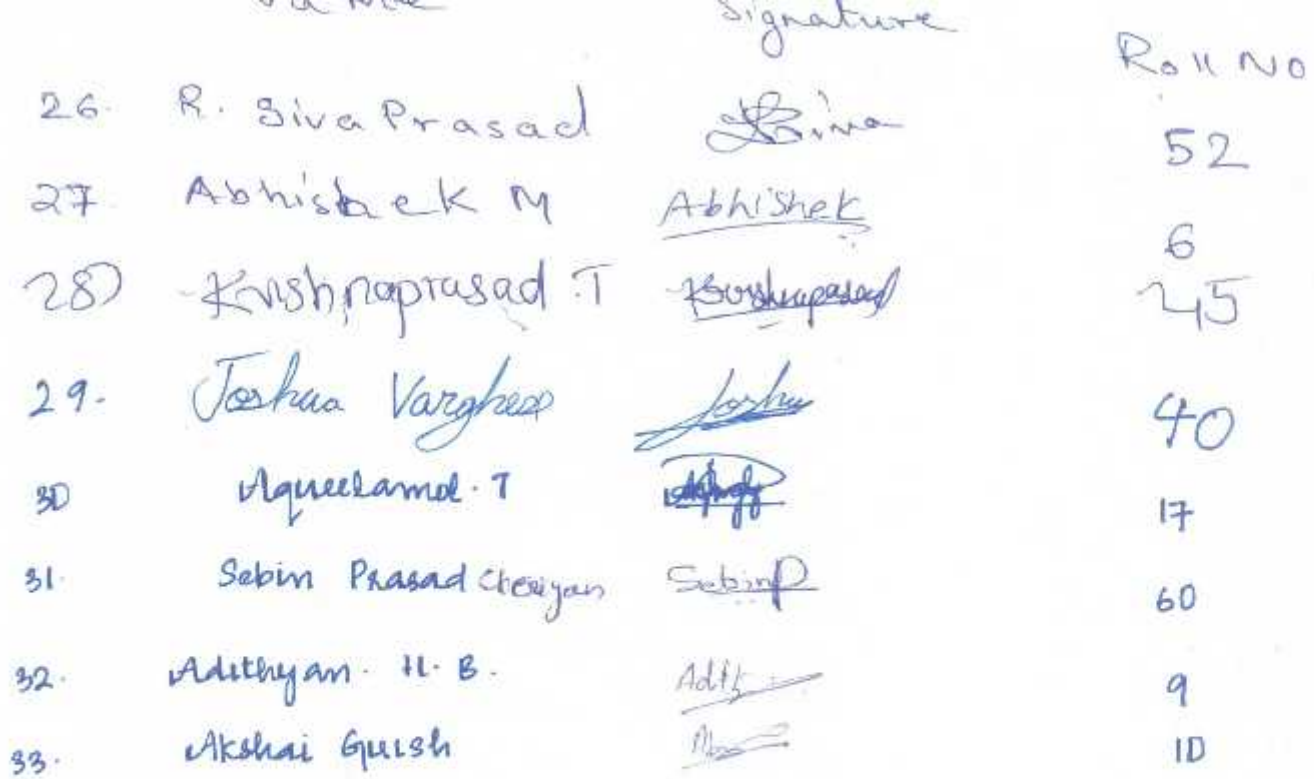 Name Signature Roll No
26. R. Siva Prasad Siva 52
27. Abhishek M Abhishek 6
28) Krishnaprasad .T Krishnaprasad 45
29. Joshua Varghese Joshu 40
30 Aqueelamol. T 17
31. Sebin Prasad Cheriyan SebinP 60
32. Adithyan. H. B. Adith 9
33. Akshai Guish 10